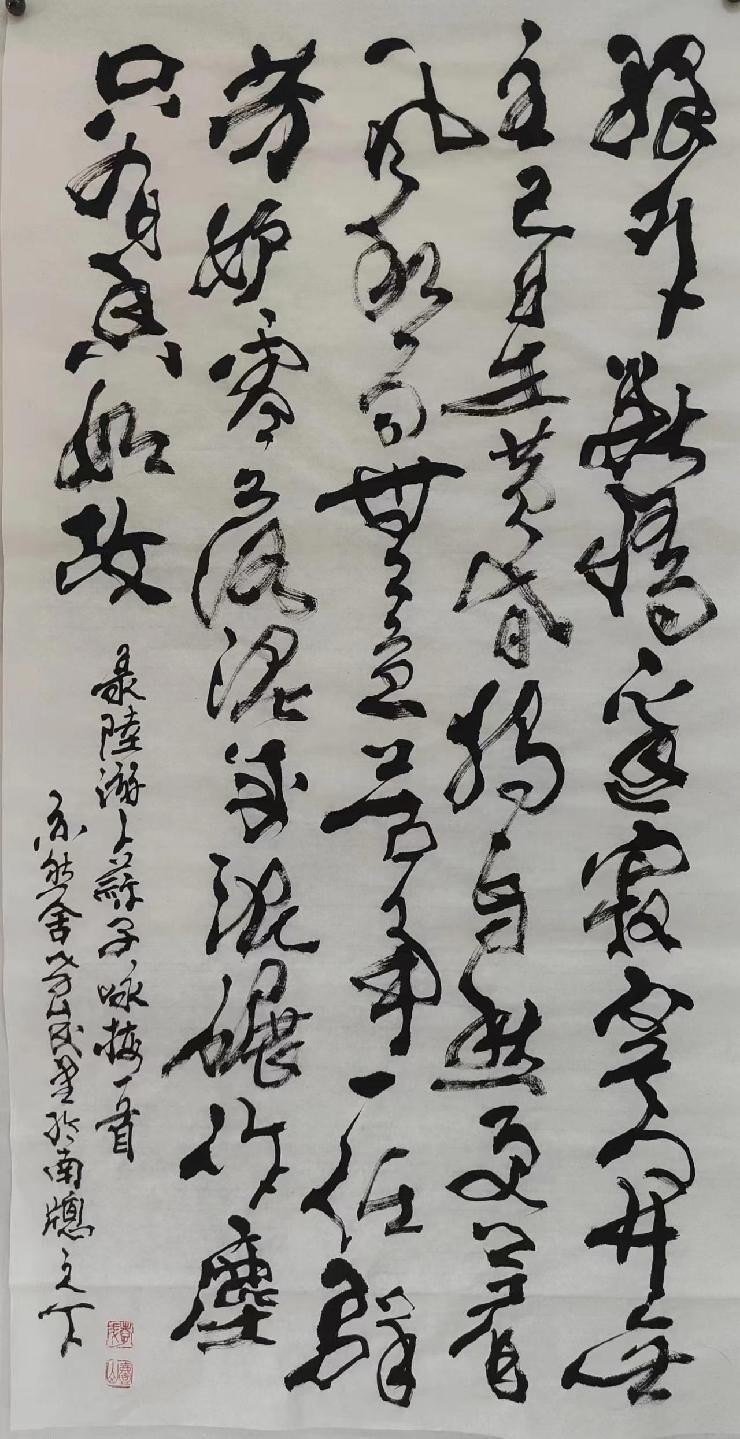 驛外斷橋邊寂寞開無
主已是黄昏獨自愁更著
風和雨無意苦争一任群
芳妒零落泥成泥碾作塵
只有香如故
录陸游卜算子咏梅一首
亦然舍於南牕之下